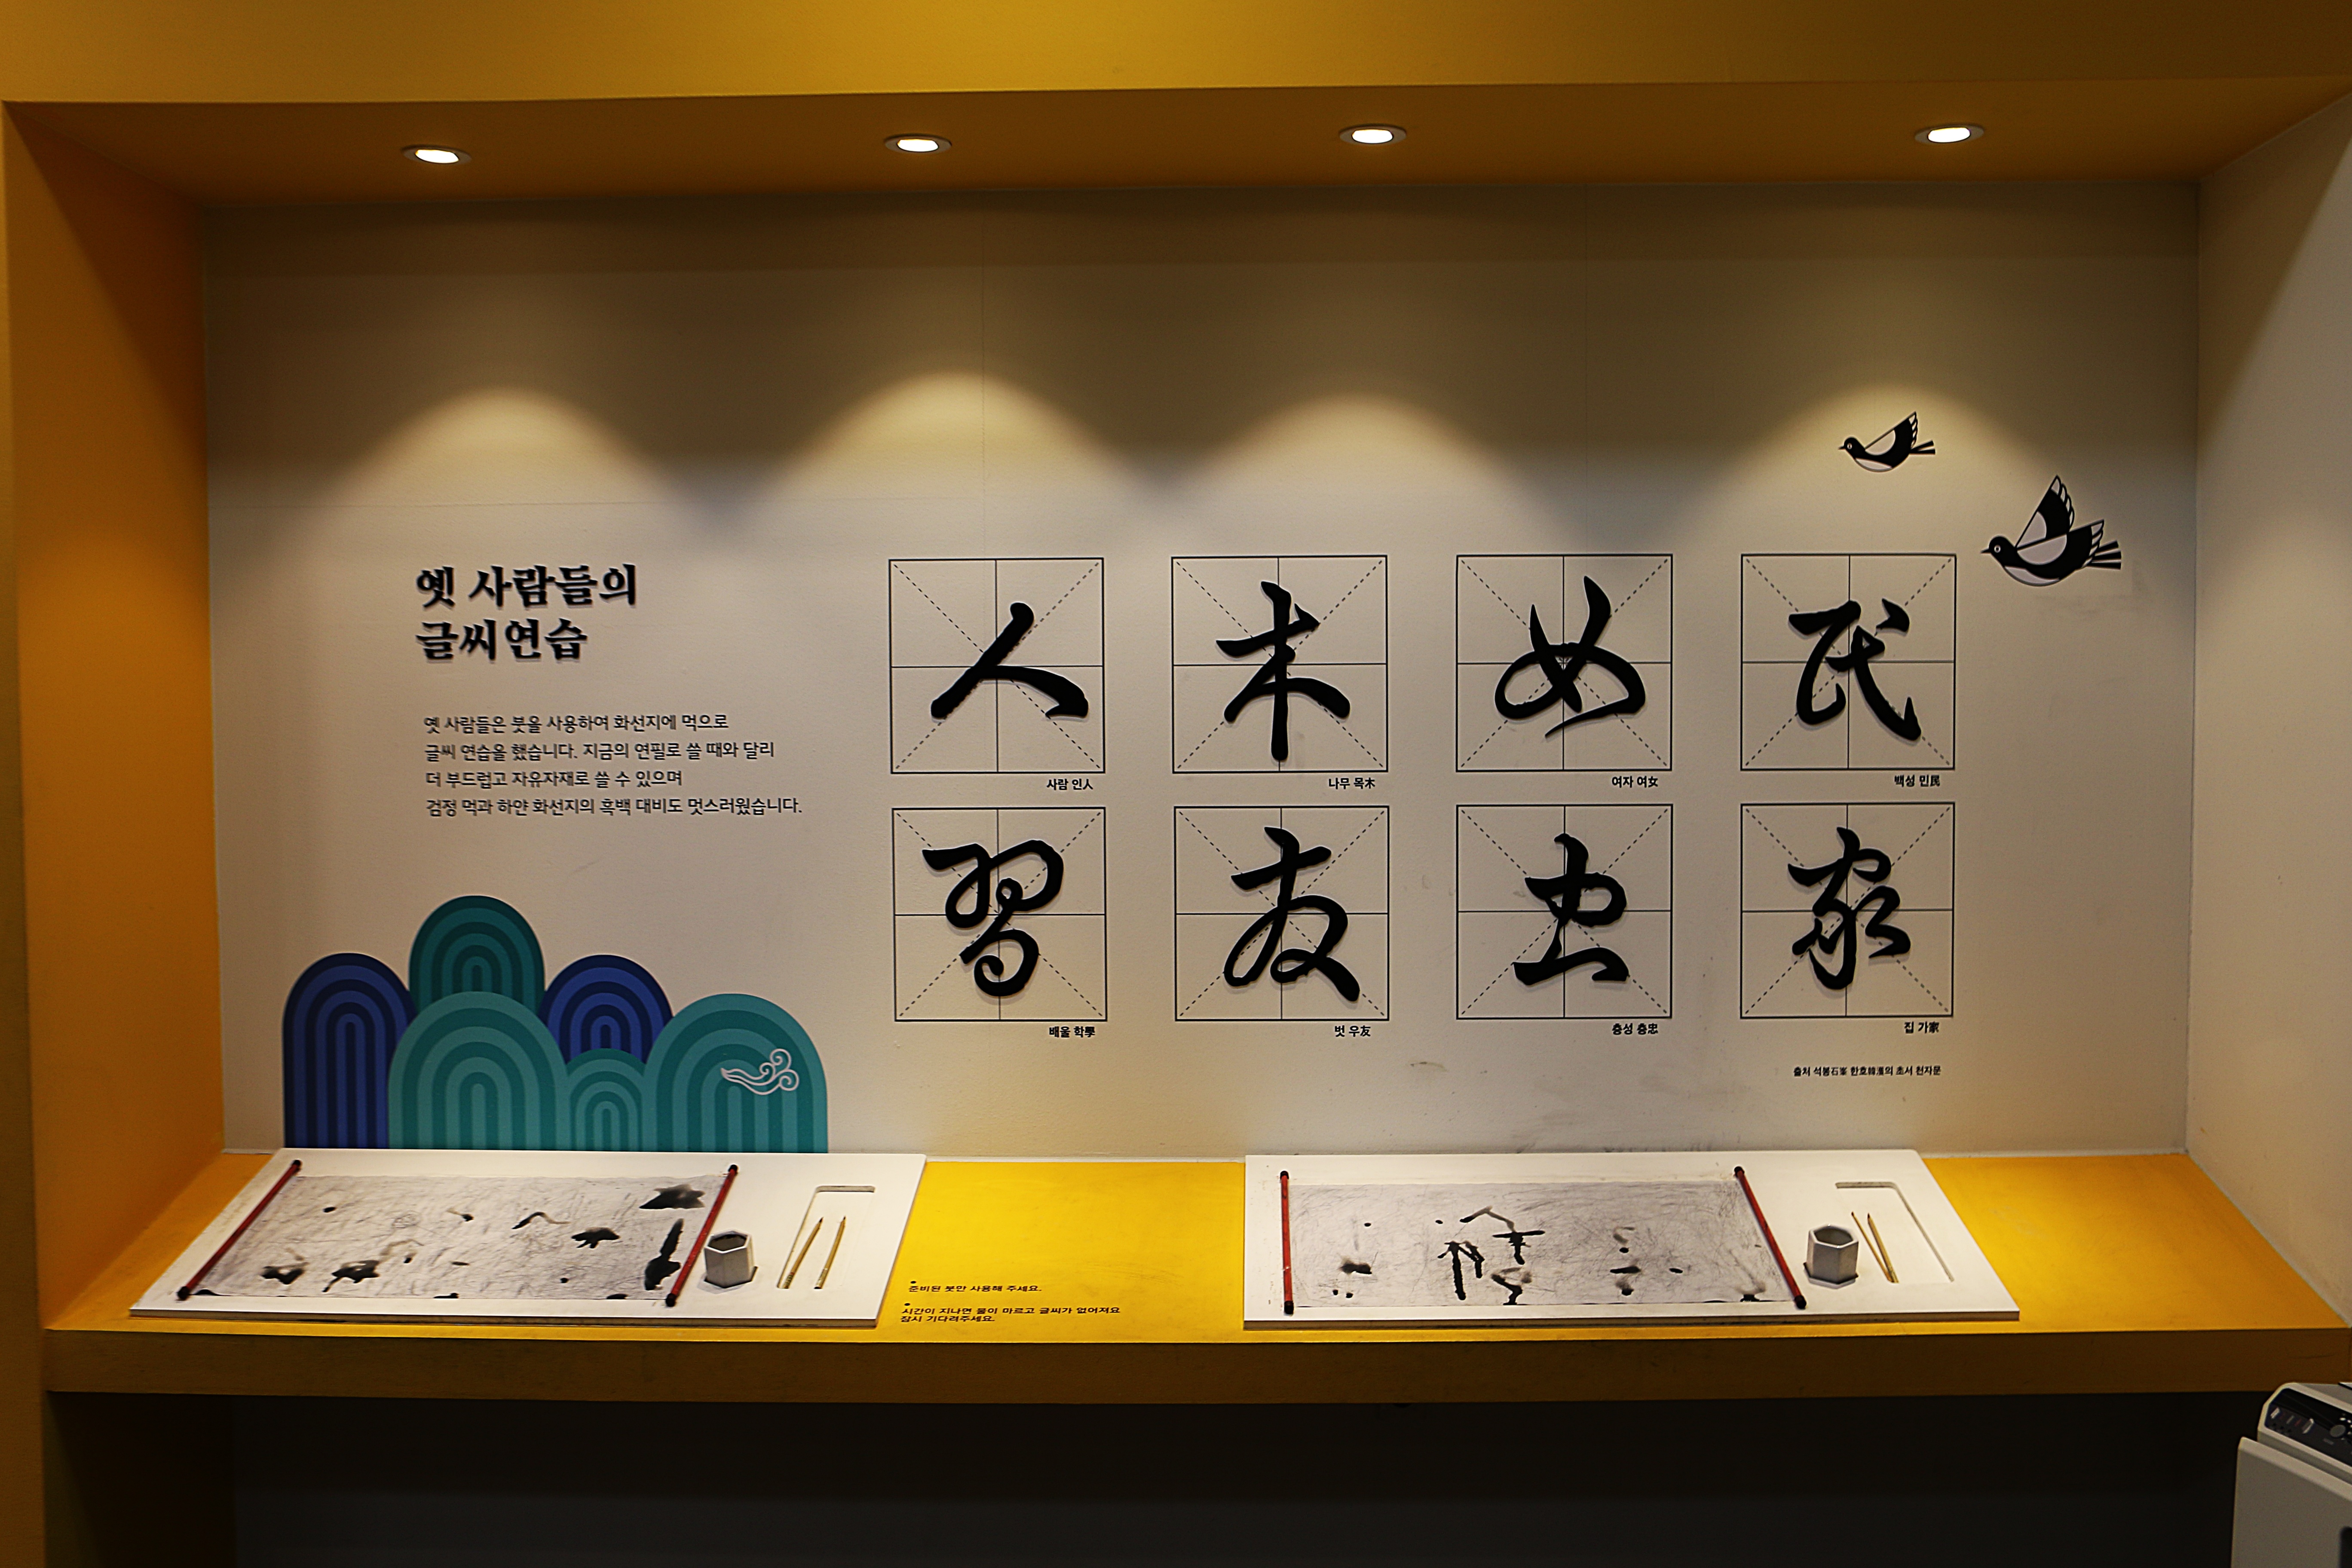 옛 사람들의
글씨 연습
옛 사람들은 붓을 사용하여 화선지에 먹으로
글씨 연습을 했습니다. 지금의 연필로 쓸 때와 달리
더 부드럽고 자유자재로 쓸 수 있으며
검정 먹과 하얀 화선지의 흑백 대비도 멋스러웠습니다.
人 木 女 民
사람 인人 나무 목木 여자 여女 백성 민民
習 友 忠 家
배울 학學 벗 우友 충성 충忠 집 가家
출처 석봉石峯 한호韓濩의 초서 천자문
준비된 붓만 사용해 주세요.
시간이 지나면 물이 마르고 글씨가 없어져요
잠시 기다려주세요.